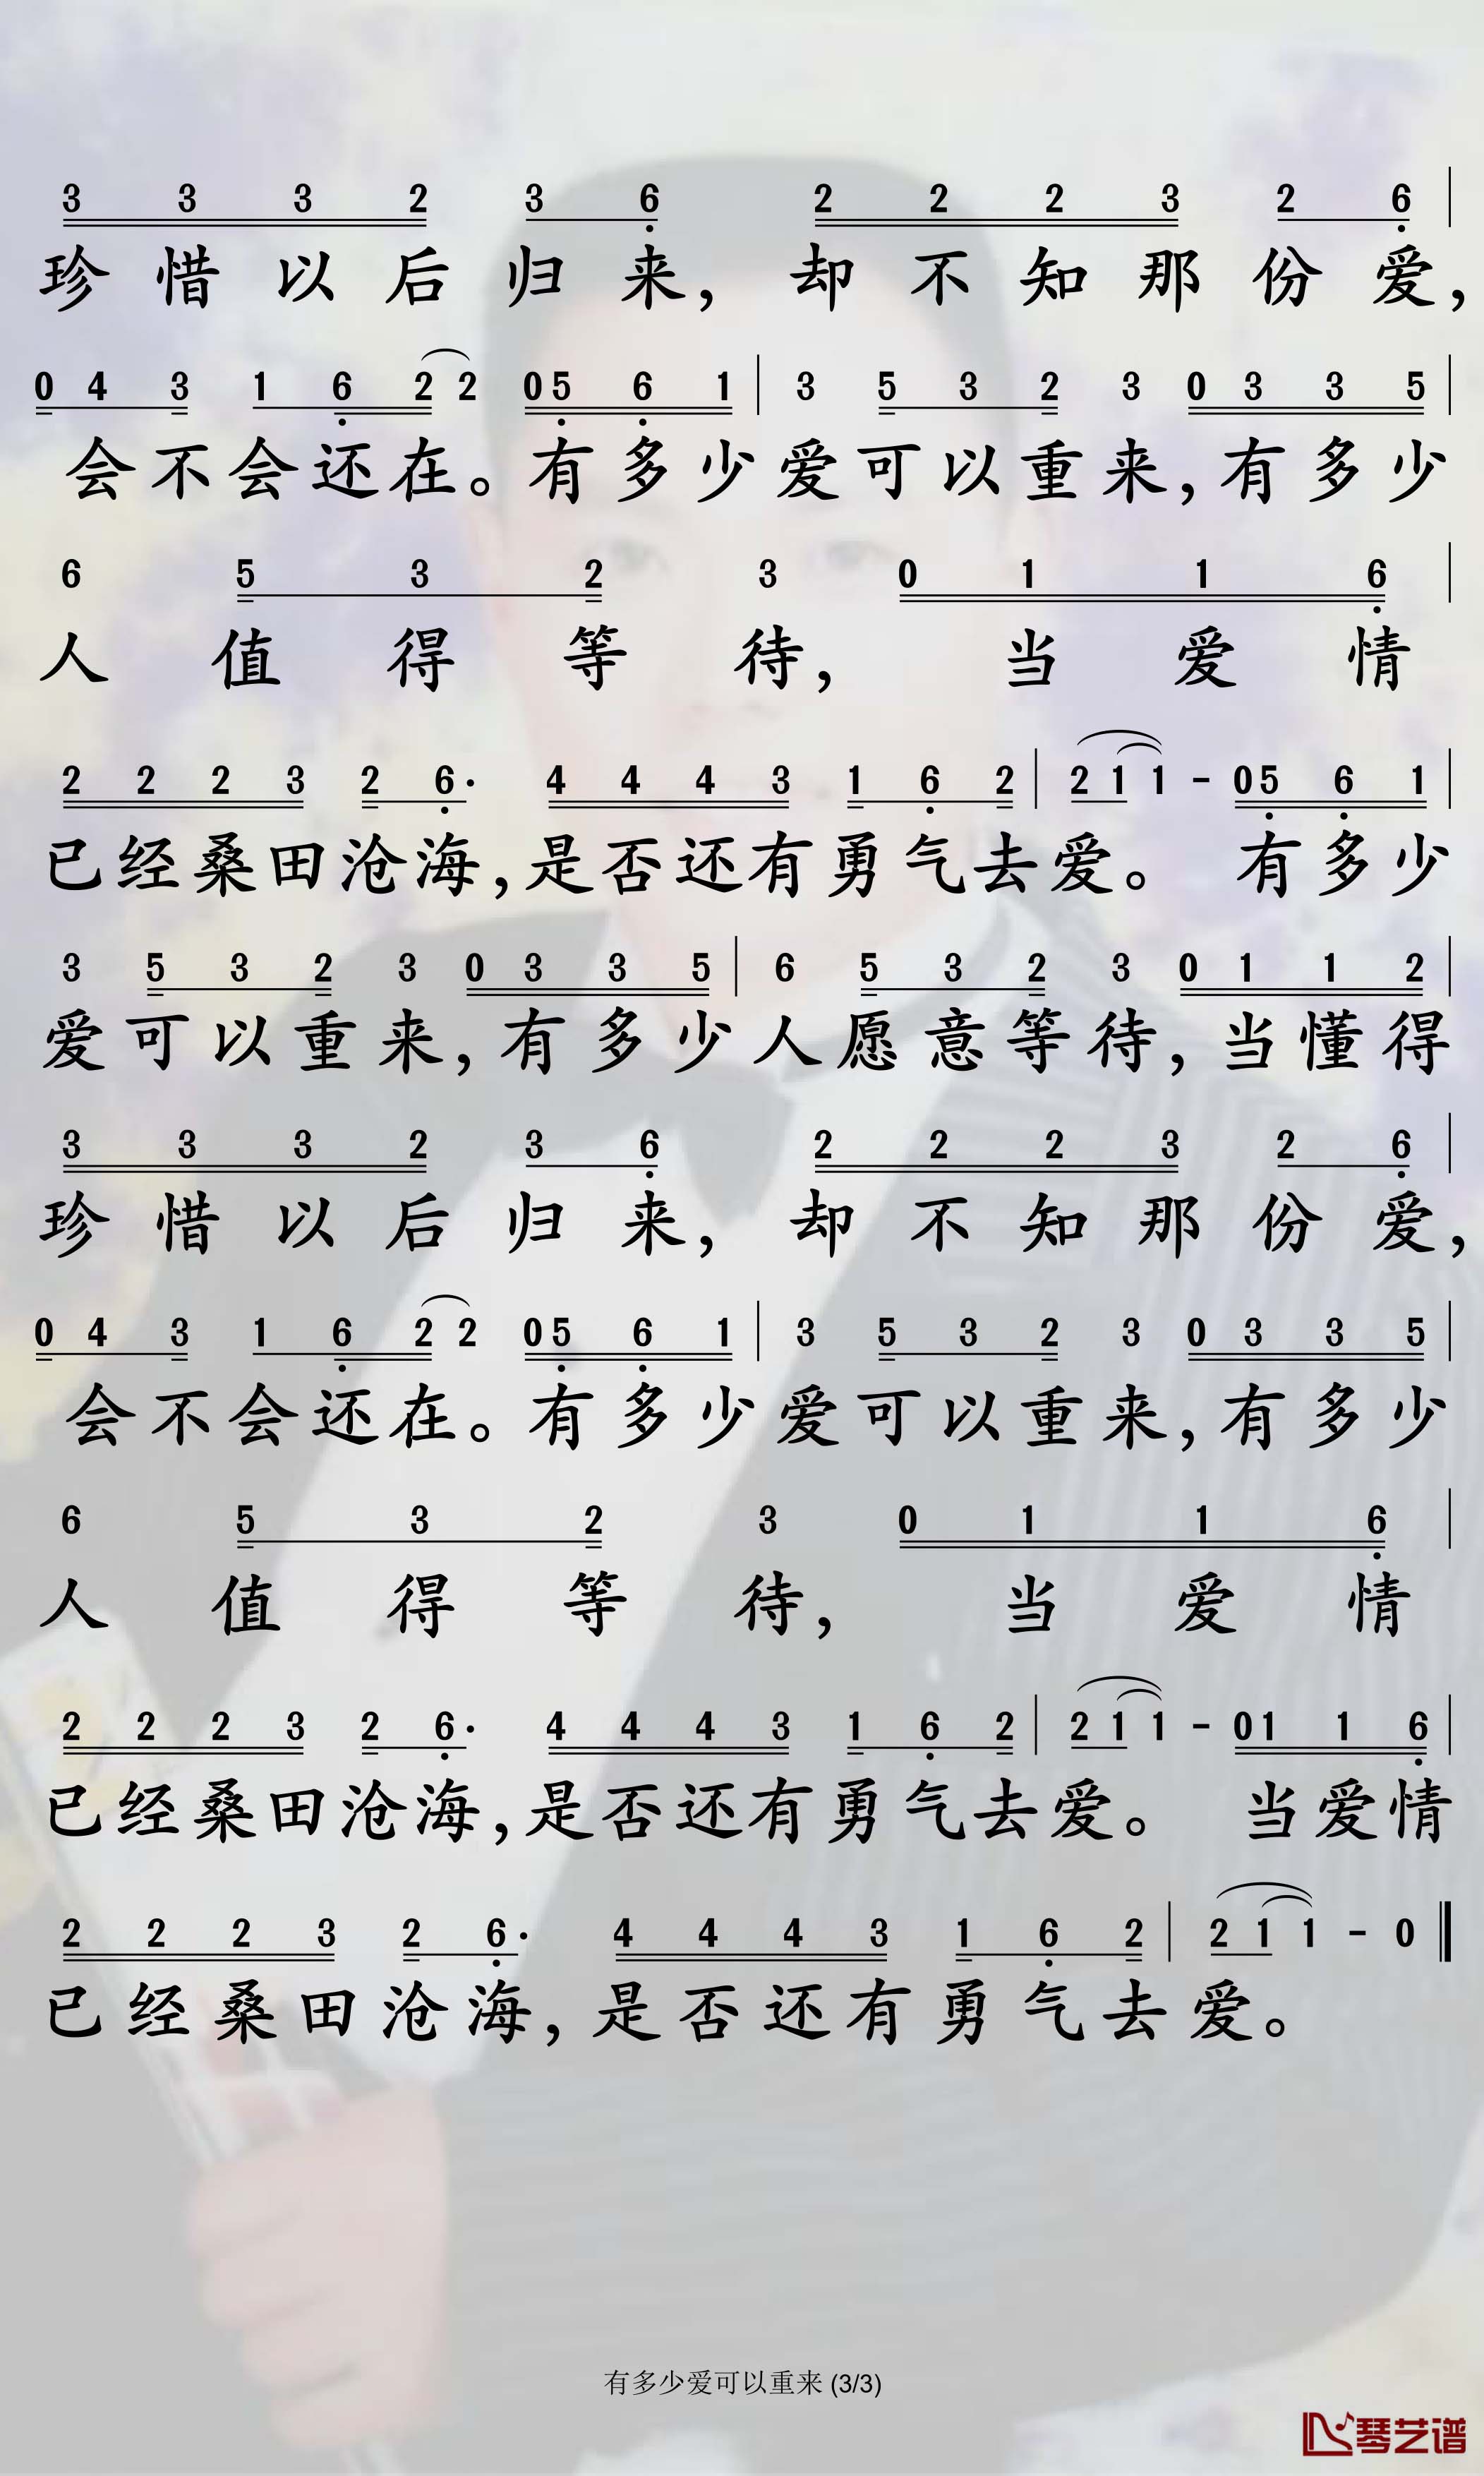 3 3 3 2 3 6 2 2 2 3 2 6
珍惜以后归来，却不知那份爱，
0 4 3 1 6 2 2 0 5 6 1 3 5 3 2 3 0 3 3 5
会不会还在。有多少爱可以重来，有多少
6 5 3 2 3 0 1 1 6
人值得等待，当爱情
2 2 2 3 2 6· 4 4 4 3 1 6 2 2 1 1 - 0 5 6 1
已经桑田沧海，是否还有勇气去爱。有多少
3 5 3 2 3 0 3 3 5 6 5 3 2 3 0 1 1 2
爱可以重来，有多少人愿意等待，当懂得
3 3 3 2 3 6 2 2 2 3 2 6
珍惜以后归来，却不知那份爱，
0 4 3 1 6 2 2 0 5 6 1 3 5 3 2 3 0 3 3 5
会不会还在。有多少爱可以重来，有多少
6 5 3 2 3 0 1 1 6
人值得等待，当爱情
2 2 2 3 2 6· 4 4 4 3 1 6 2 2 1 1 - 0 1 1 6
已经桑田沧海，是否还有勇气去爱。当爱情
2 2 2 3 2 6· 4 4 4 3 1 6 2 2 1 1 - 0
已经桑田沧海，是否还有勇气去爱。
有多少爱可以重来 (3/3)
琴艺谱